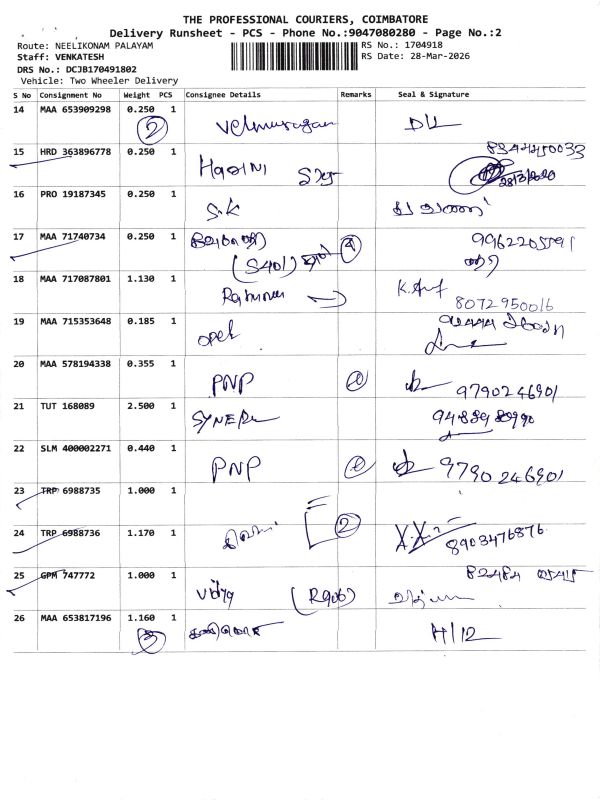 THE PROFESSIONAL COURIERS, COIMBATORE
Delivery Runsheet - PCS - Phone No.:9047080280 - Page No.:2
Route: NEELIKONAM PALAYAM
RS No.: 1704918
Staff: VENKATESH
RS Date: 28-Mar-2026
DRS No.: DCJB170491802
Vehicle: Two Wheeler Delivery
S No Consignment No Weight PCS Consignee Details Remarks Seal & Signature
14 MAA 653909298 0.250 1
2 Velmurugan
15 HRD 363896778 0.250 1
16 PRO 19187345 0.250 1
S.K
17 MAA 71740734 0.250 1
(S401)
18 MAA 717087801 1.130 1
8072950016
19 MAA 715353648 0.185 1
opel
20 MAA 578194338 0.355 1
PNP 9790246901
21 TUT 168089 2.500 1
22 SLM 400002271 0.440 1
PNP 9790246901
23 TRP 6988735 1.000 1
24 TRP 6988736 1.170 1
2 8903476876
25 GPM 747772 1.000 1
Vidya
26 MAA 653817196 1.160 1
3 H/12